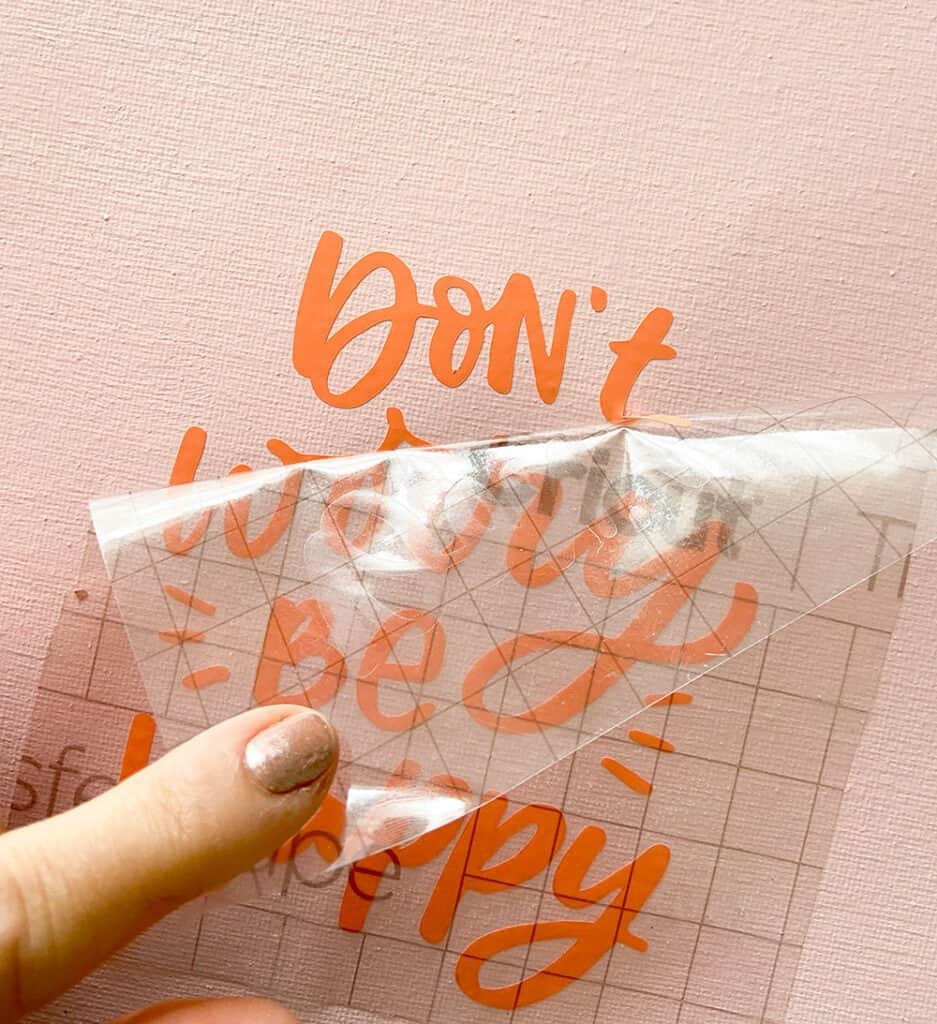 Don't
Worry
Be
Happy